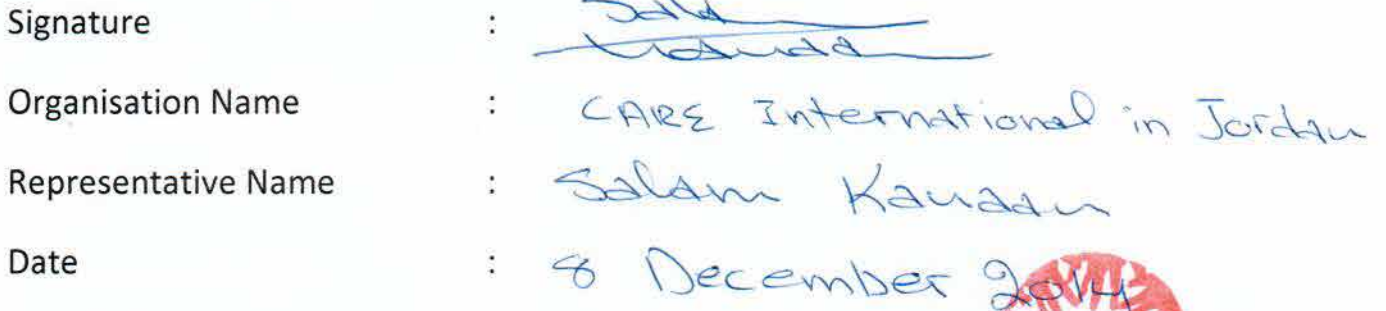 Signature :
Organisation Name : CARE International in Jordan
Representative Name : Salam Kanaan
Date : 8 December 2014